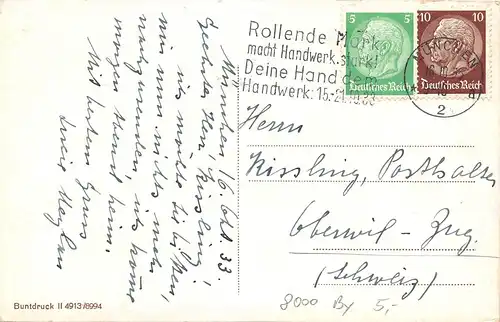 München 16. Okt. 33.
Geehrter Herr Kissling,
ich möchte Sie bitten,
mir nun nichts mehr
nachzusenden, ich komme
morgen Abend heim.
Mit bestem Gruss
Rollende Mark
macht Handwerk stark!
Deine Hand dem
Handwerk: 15.-21.10.33
5
Deutsches Reich
10
Deutsches Reich
MÜNCHEN
2
Herrn
Kissling, Posthalter
Oberwil-Zug.
(Schweiz)
8000 By 5,-
Buntdruck II 4913/8994